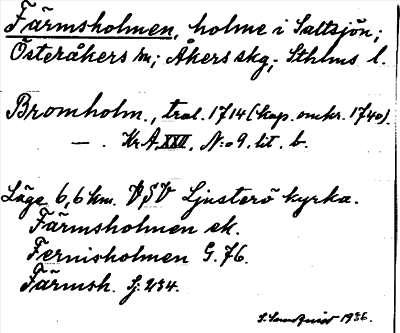 Färmsholmen, holme i Saltsjön;
Österåkers sn; Åkers skg; Sthlms l.
Bromholm., tral. 1714 (kop. omkr. 1740).
— . Kr A. XXII, N:o 9. lit. b.
Läge 6,6 km. VSV Ljusterö kyrka.
Färmsholmen ek.
Fernisholmen G. 76.
Färmsh. Sj: 234.
1936.